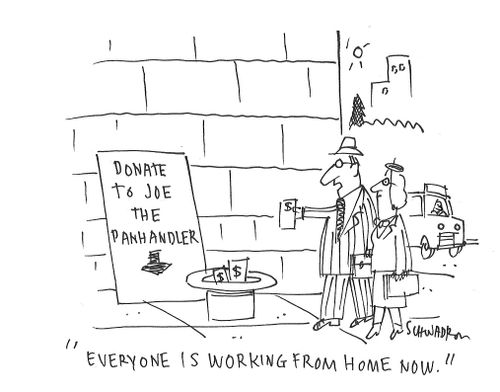 DONATE
TO JOE
THE
PANHANDLER
$
$ $
SCHWADRON
"EVERYONE IS WORKING FROM HOME NOW."